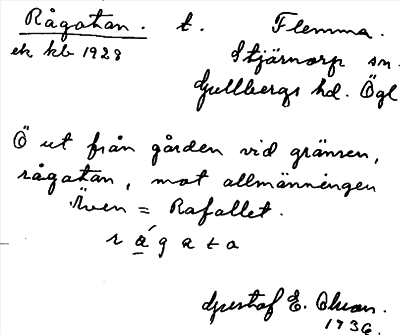 Rågatan. t. Flemma.
ek kb 1928 Stjärnorp sn.
Gullbergs hd. Ögl
Ö ut från gården vid gränsen,
rågatan, mot allmänningen
Även = Rafallet.
r á g a t a
Gustaf E. Olson.
1936.